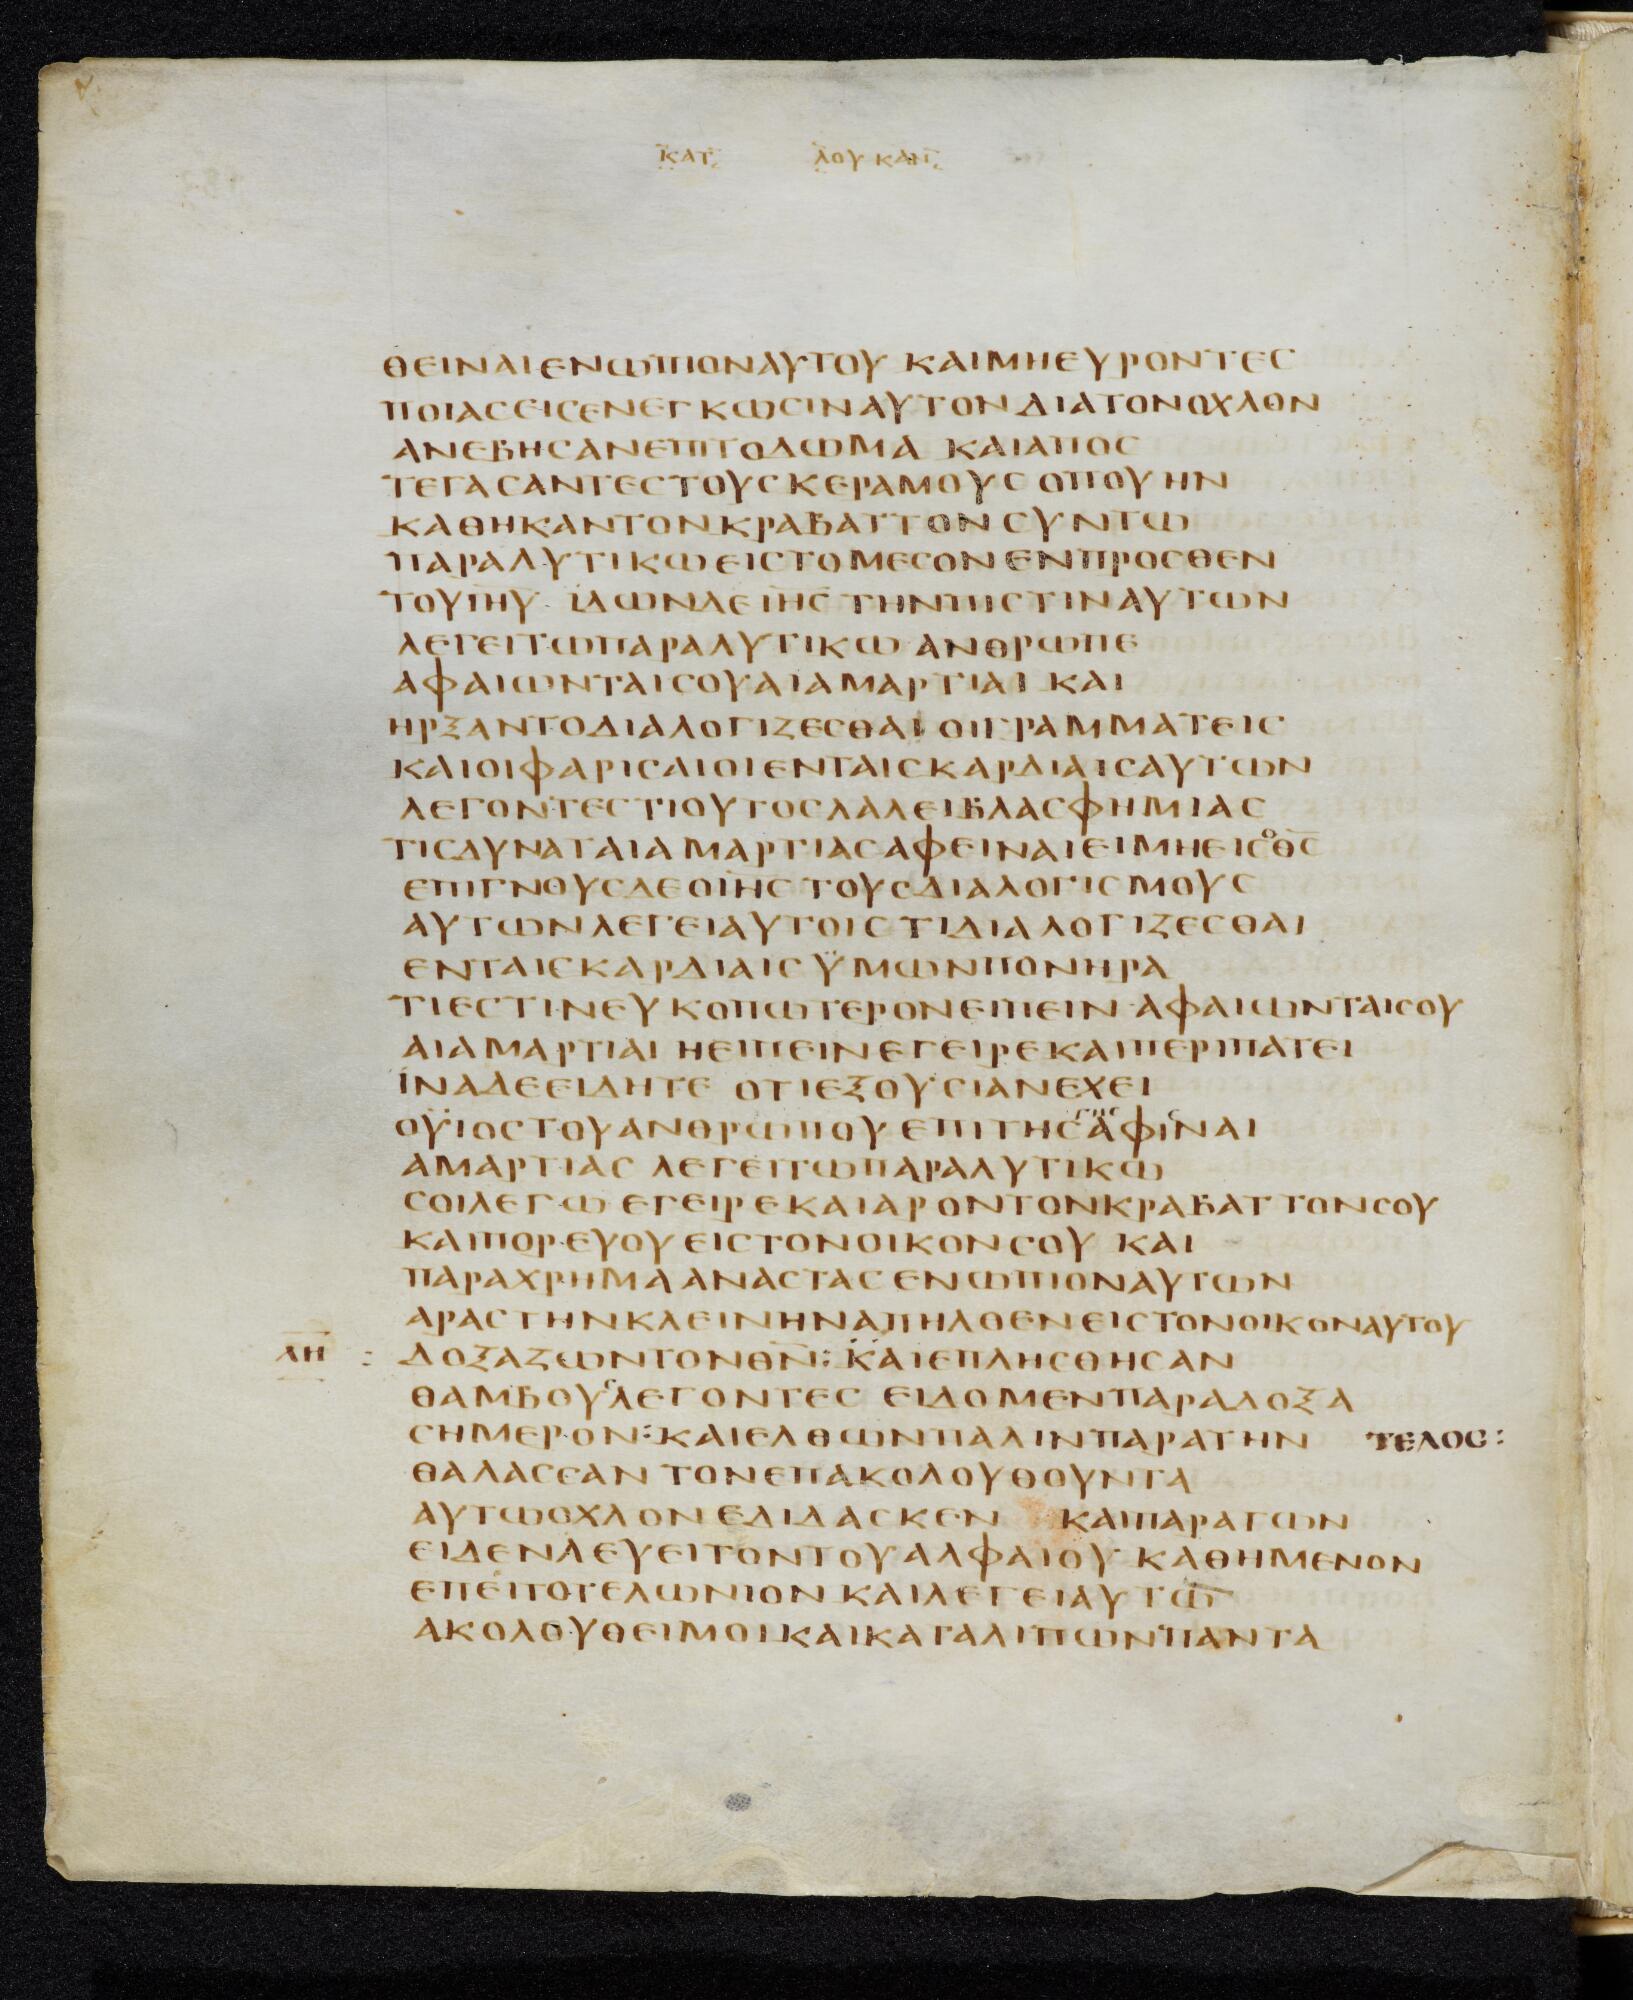 ΚΑΤ ΛΟΥΚΑΝ
ΘΕΙΝΑΙΕΝΩΠΙΟΝΑΥΤΟΥ ΚΑΙΜΗΕΥΡΟΝΤΕС
ΠΟΙΑСΕΙСΕΝΕΓΚΩСΙΝΑΥΤΟΝΔΙΑΤΟΝΟΧΛΟΝ
ΑΝΕΒΗСΑΝΕΠΙΤΟΔΩΜΑ ΚΑΙΑΠΟС
ΤΕΓΑСΑΝΤΕСΤΟΥСΚΕΡΑΜΟΥС ΟΠΟΥΗΝ
ΚΑΘΗΚΑΝΤΟΝΚΡΑΒΑΤΤΟΝ СΥΝΤΩ
ΠΑΡΑΛΥΤΙΚΩΕΙСΤΟΜΕСΟΝΕΝΠΡΟСΘΕΝ
ΤΟΥΙΗΥ ΙΔΩΝΔΕΙΗС ΤΗΝΠΙСΤΙΝΑΥΤΩΝ
ΛΕΓΕΙΤΩΠΑΡΑΛΥΤΙΚΩ ΑΝΘΡΩΠΕ
ΑΦΑΙΩΝΤΑΙСΟΥΑΙΑΜΑΡΤΙΑΙ ΚΑΙ
ΗΡΞΑΝΤΟΔΙΑΛΟΓΙΖΕСΘΑΙ ΟΙΓΡΑΜΜΑΤΕΙС
ΚΑΙΟΙΦΑΡΙСΑΙΟΙΕΝΤΑΙСΚΑΡΔΙΑΙСΑΥΤΩΝ
ΛΕΓΟΝΤΕСΤΙΟΥΤΟСΛΑΛΕΙΒΛΑСΦΗΜΙΑС
ΤΙСΔΥΝΑΤΑΙΑΜΑΡΤΙΑСΑΦΕΙΝΑΙΕΙΜΗΕΙСΟΘС
ΕΠΙΓΝΟΥСΔΕΟΙΗС ΤΟΥСΔΙΑΛΟΓΙСΜΟΥС
ΑΥΤΩΝΛΕΓΕΙΑΥΤΟΙС ΤΙΔΙΑΛΟΓΙΖΕСΘΑΙ
ΕΝΤΑΙСΚΑΡΔΙΑΙСΫΜΩΝΠΟΝΗΡΑ
ΤΙΕСΤΙΝΕΥΚΟΠΩΤΕΡΟΝΕΙΠΕΙΝ ΑΦΑΙΩΝΤΑΙСΟΥ
ΑΙΑΜΑΡΤΙΑΙ ΗΕΙΠΕΙΝΕΓΕΙΡΕΚΑΙΠΕΡΙΠΑΤΕΙ
ΪΝΑΔΕΕΙΔΗΤΕ ΟΤΙΕΞΟΥСΙΑΝΕΧΕΙ
ΟΫΙΟСΤΟΥΑΝΘΡΩΠΟΥ ΕΠΙΤΗСΓΗСΑΦΙΕΝΑΙ
ΑΜΑΡΤΙΑС ΛΕΓΕΙΤΩΠΑΡΑΛΥΤΙΚΩ
СΟΙΛΕΓΩ ΕΓΕΙΡΕΚΑΙΑΡΟΝΤΟΝΚΡΑΒΑΤΤΟΝСΟΥ
ΚΑΙΠΟΡΕΥΟΥ ΕΙСΤΟΝΟΙΚΟΝСΟΥ ΚΑΙ
ΠΑΡΑΧΡΗΜΑΑΝΑСΤΑС ΕΝΩΠΙΟΝΑΥΤΩΝ
ΑΡΑСΤΗΝΚΛΕΙΝΗΝΑΠΗΛΘΕΝΕΙСΤΟΝΟΙΚΟΝΑΥΤΟΥ
ΛΗ : ΔΟΞΑΖΩΝΤΟΝΘΝ: ΚΑΙΕΠΛΗСΘΗСΑΝ
ΘΑΜΒΟΥСΛΕΓΟΝΤΕС ΕΙΔΟΜΕΝΠΑΡΑΔΟΞΑ
СΗΜΕΡΟΝ: ΚΑΙΕΛΘΩΝΠΑΛΙΝΠΑΡΑΤΗΝ ΤΕΛΟС:
ΘΑΛΑССΑΝ ΤΟΝΕΠΑΚΟΛΟΥΘΟΥΝΤΑ
ΑΥΤΩΟΧΛΟΝΕΔΙΔΑСΚΕΝ ΚΑΙΠΑΡΑΓΩΝ
ΕΙΔΕΝΛΕΥΕΙΤΟΝΤΟΥΑΛΦΑΙΟΥ ΚΑΘΗΜΕΝΟΝ
ΕΠΕΙΤΟΤΕΛΩΝΙΟΝ ΚΑΙΛΕΓΕΙΑΥΤΩ
ΑΚΟΛΟΥΘΕΙΜΟΙ ΚΑΙΚΑΤΑΛΙΠΩΝΠΑΝΤΑ